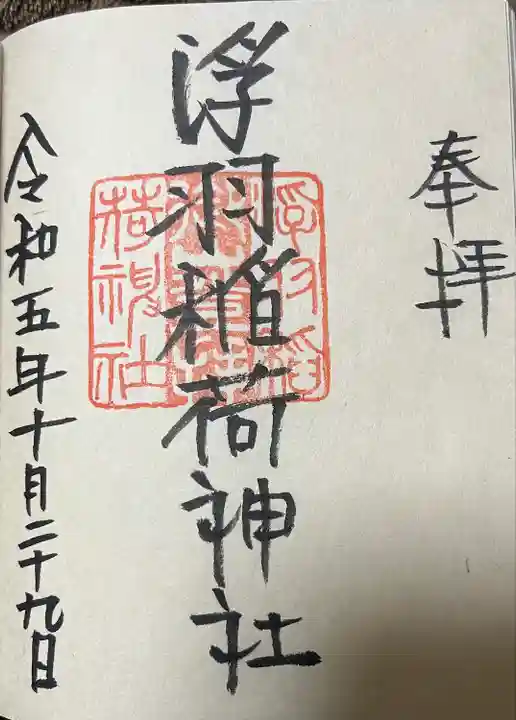 奉拝
浮羽稲荷神社
令和五年十月二十九日